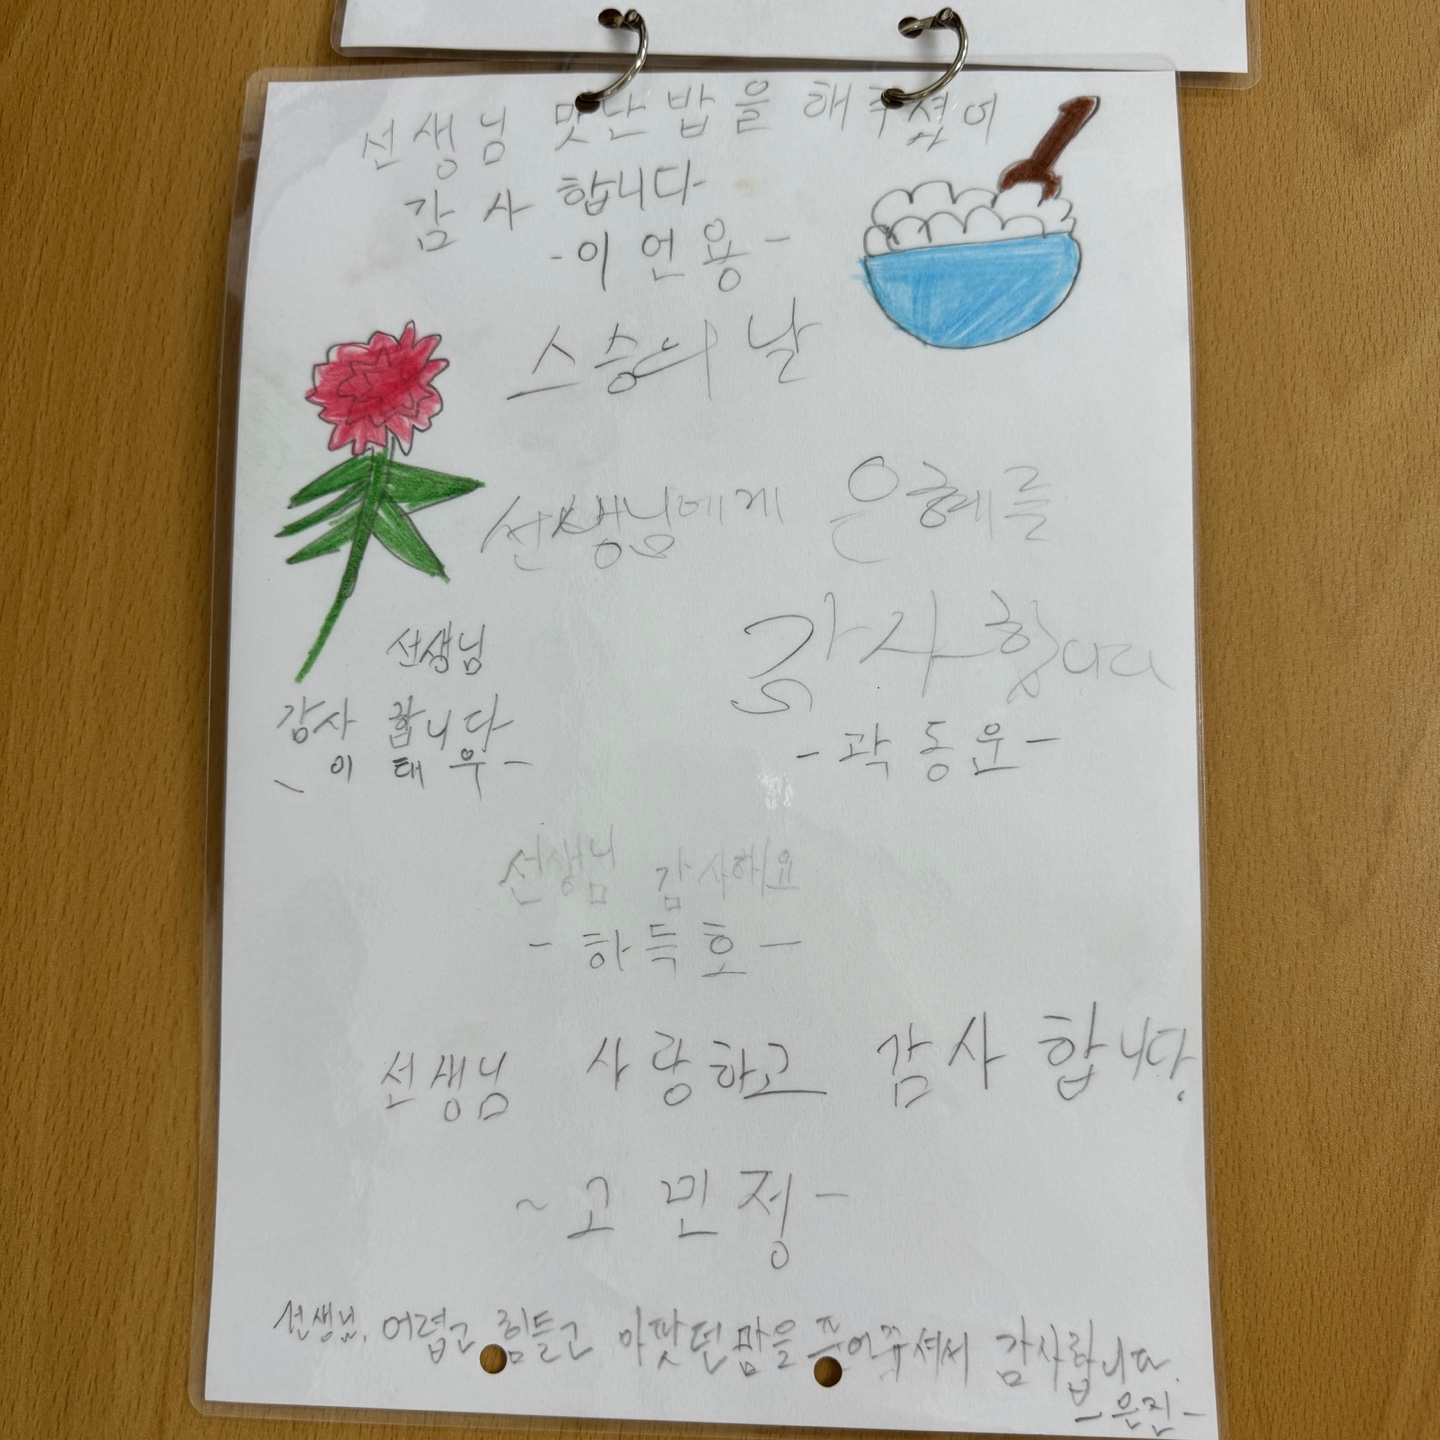 선생님 맛난 밥을 해주셨어
감사 합니다
-이언용-
스승의 날
선생님에게 은혜를
감사합니다
-곽동운-
선생님
감사 합니다
- 이태우 -
선생님 감사해요
- 하득호 -
선생님 사랑하고 감사 합니다.
~ 고민정 -
선생님, 어렵고 힘들고 아팟던 맘을 주셔서 감사랍니다.
- 은진 -